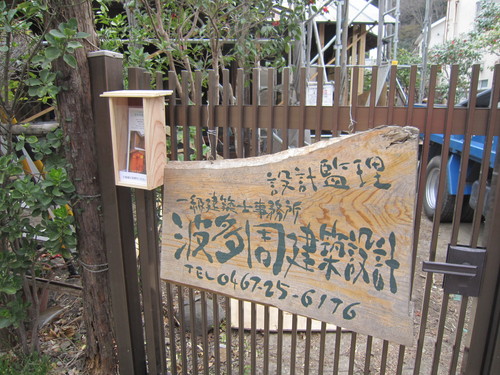 設計監理
一級建築士事務所
波多周建築設計
TEL 0467-25-6176